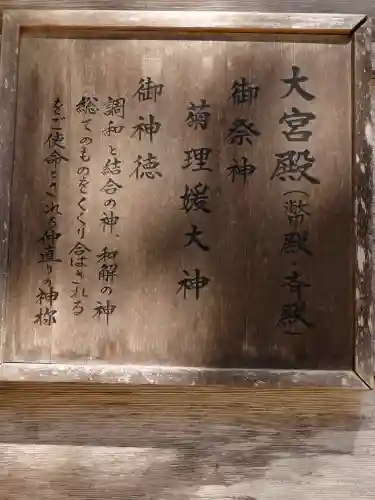 大宮殿(幣殿・斎殿)
御祭神
菊理媛大神
御神徳
調和と結合の神、和解の神
総てのものをくくり合はされる
をご使命とされる仲直りの神様